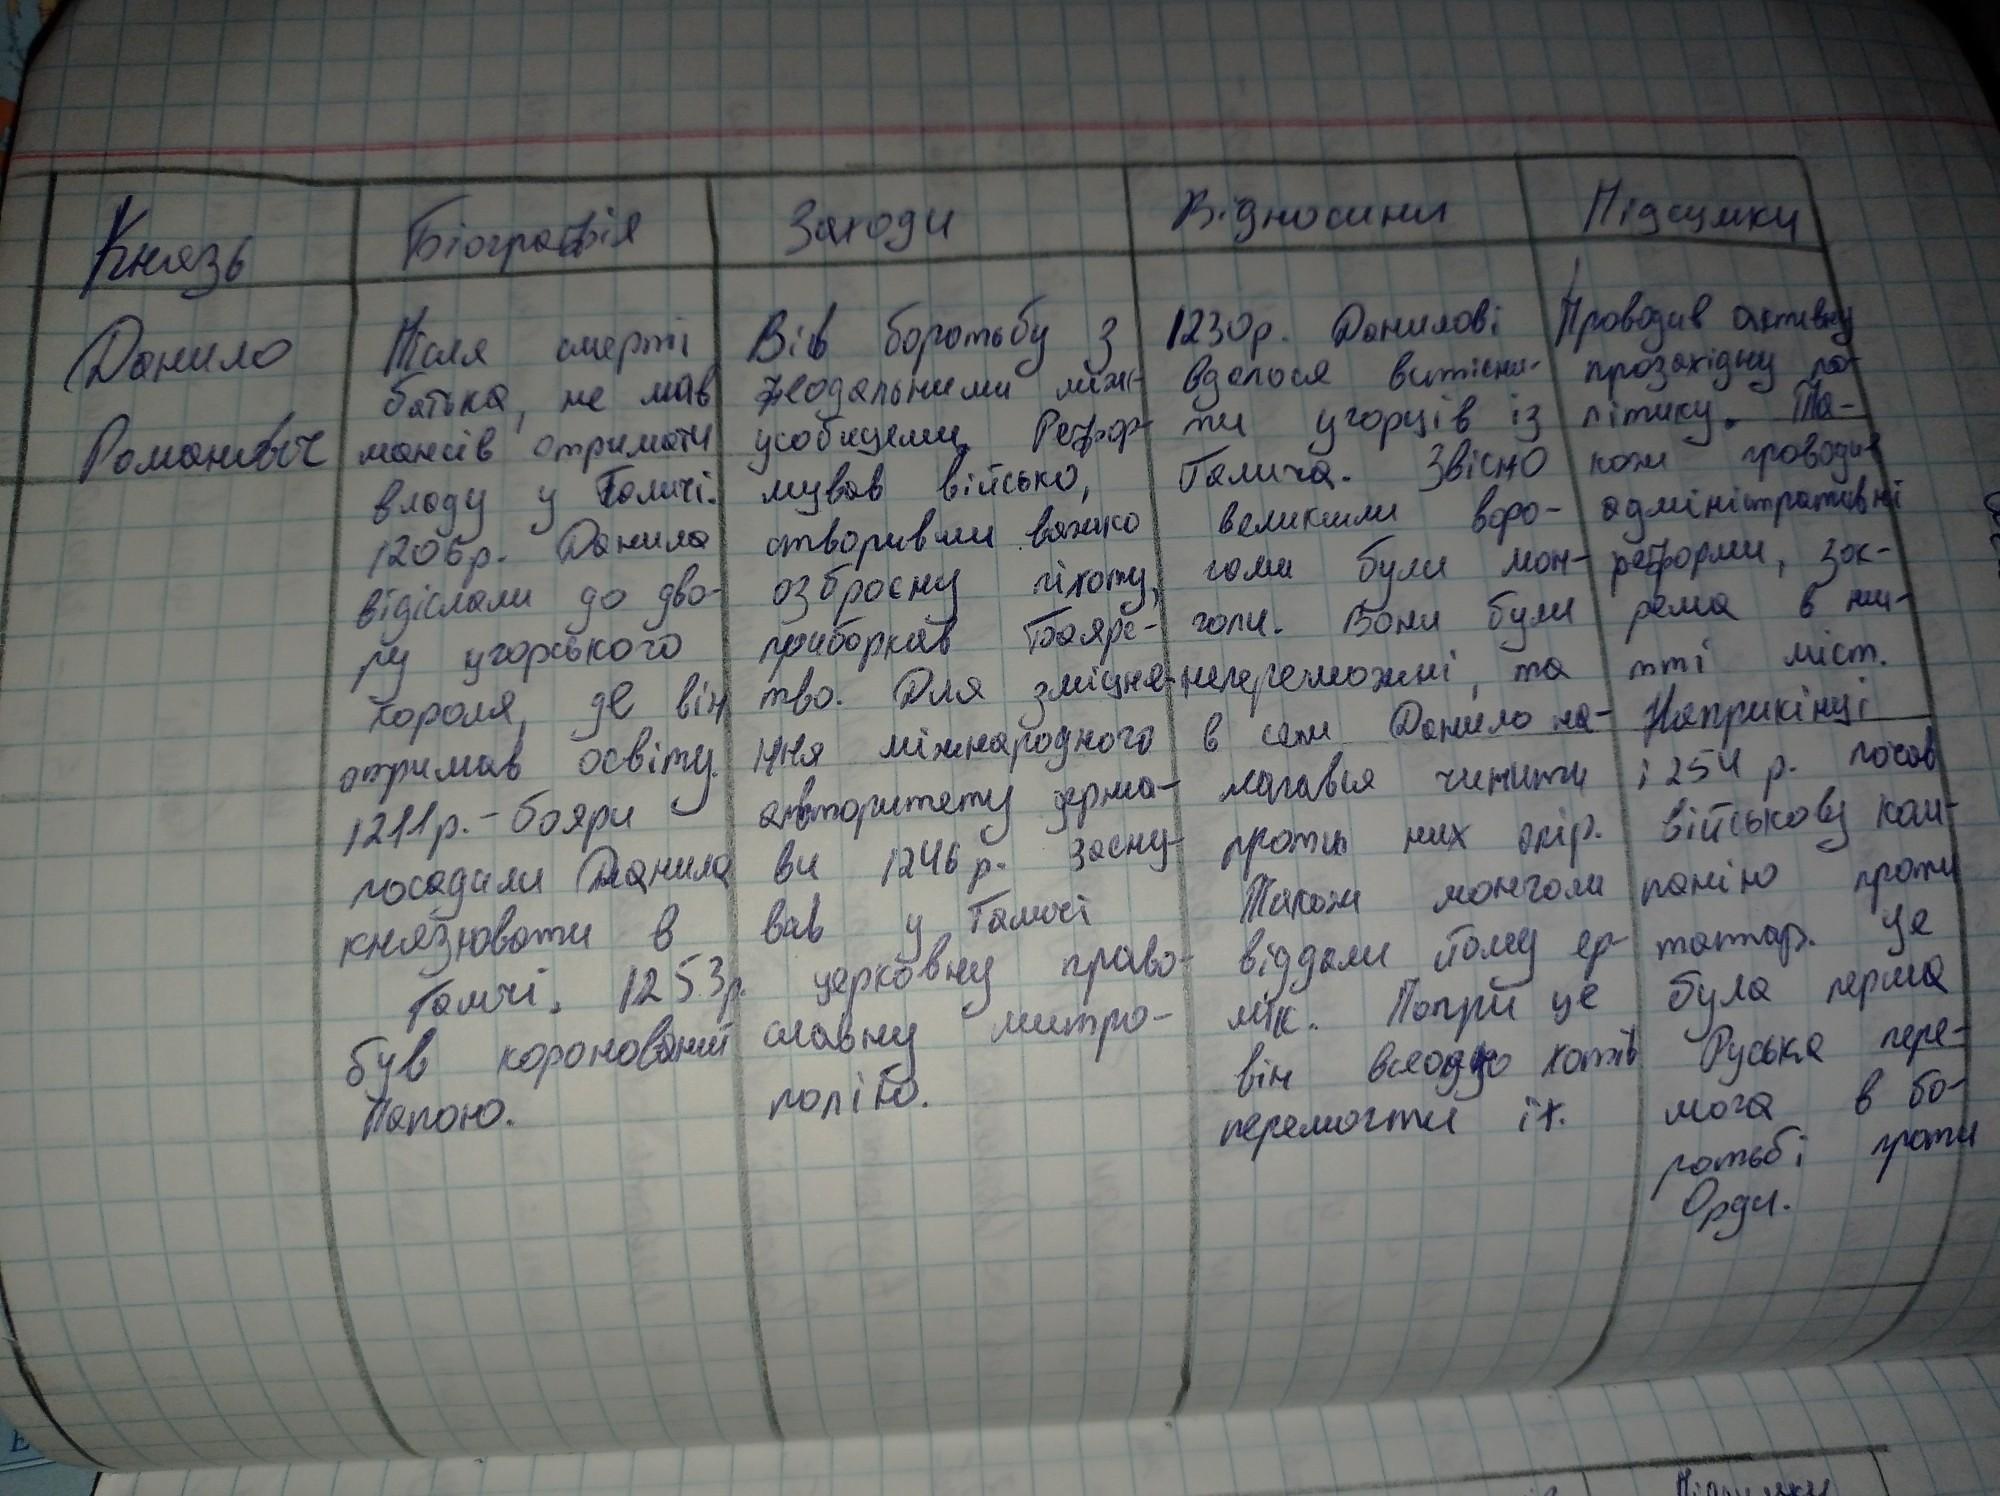 Князь
Біографія
Заходи
Відносини
Підсумки
Данило
Романович
Після смерті
батька, не мав
мансів отримати
владу у Галичі.
1206р. Данила
відіслали до дво-
ру угорського
короля, де він
отримав освіту.
1211р. - бояри
посадили Данила
князювати в
Галичі. 1253р.
був коронований
Папою.
Вів боротьбу з
феодальними між-
усобицеми. Рефор-
мував військо,
створивши важко
озброєну піхоту,
приборкав боярс-
тво. Для зміцне-
ння міжнародного
авторитету держа-
ви 1246р. засну-
вав у Галичі
церковну право-
славну митро-
полію.
1230р. Данилові
вдалося витісни-
ти угорців із
Галича. Звісно
великими воро-
гами були мон-
голи. Вони були
непереможні, та
в сам Данило на-
магався чинити
проти них опір.
Також монголи
віддали йому яр-
лик. Попри це
він всеодно хотів
перемогти їх.
Проводив активну
прозахідну по-
літику. Та-
кож проводив
адміністративні
реформи, зок-
рема в жи-
тті міст.
Наприкінці
1254 р. почав
військову кам-
панію проти
татар. Це
була перша
Руська пере-
мога в бо-
ротьбі проти
Орди.
Підсумки